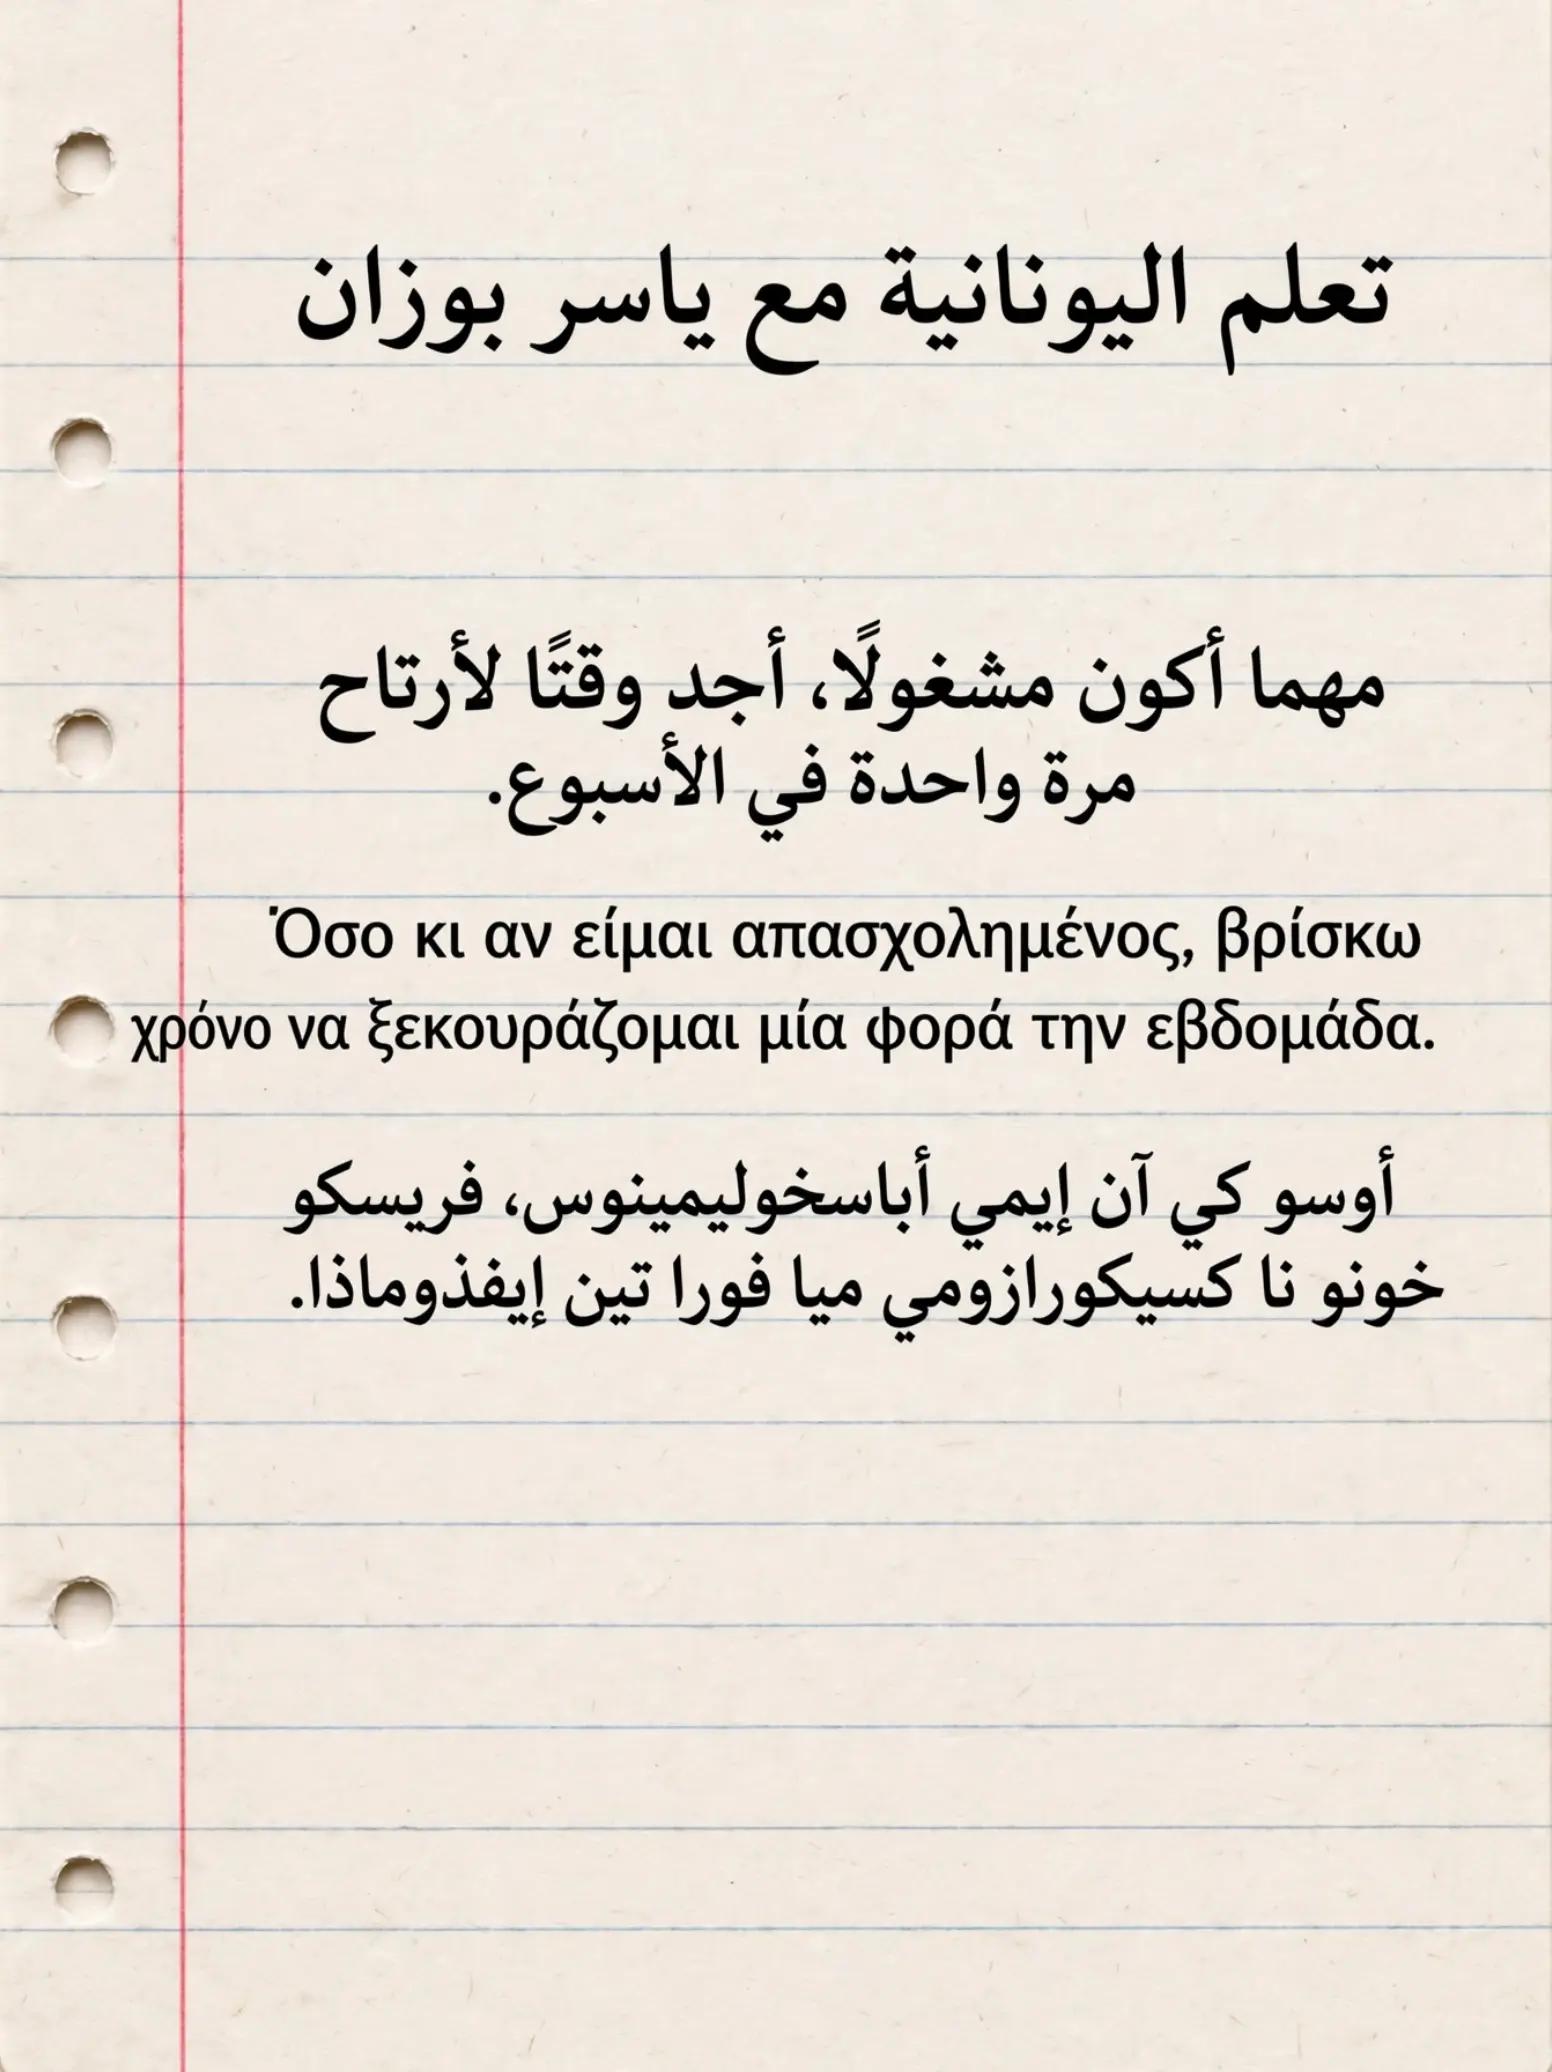 تعلم اليونانية مع ياسر بوزان
مهما أكون مشغولًا، أجد وقتًا لأرتاح
مرة واحدة في الأسبوع.
Όσο κι αν είμαι απασχολημένος, βρίσκω
χρόνο να ξεκουράζομαι μία φορά την εβδομάδα.
أوسو كي آن إيمي أباسخوليمينوس، فريسكو
خونو نا كسيكورازومي ميا فورا تين إيفذوماذا.